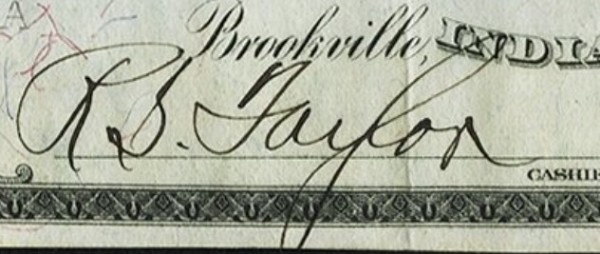 A
Brookville, INDIA
R. S. Taylor
CASHIE